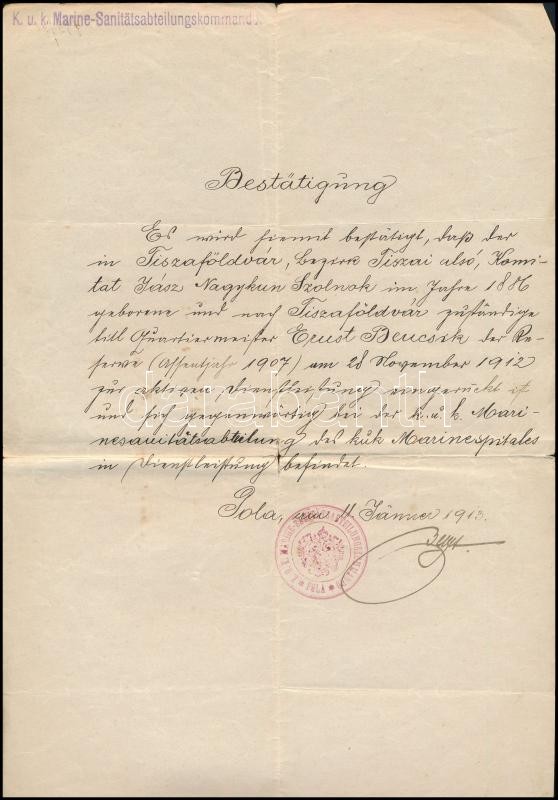 K. u. k. Marine-Sanitätsabteilungskommando.
Bestätigung
Es wird hiemit bestätigt, daß der
in Tiszaföldvár, Bezirk Tiszai alsó, Komi-
tat Jász Nagykun Szolnok im Jahre 1886
geborene und nach Tiszaföldvár zuständige
titl Quartiermeister Ernst Bencsik der Re-
serve (Assentjahr 1907) am 28 November 1912
zur aktiven Dienstleistung eingerückt ist
und sich gegenwärtig bei der k. u. k. Mari-
nesanitätsabteilung des kuk Marinespitales
in Dienstleistung befindet.
Pola, am 11 Jänner 1913.
K.U.K. MARINE-SANITÄTSABTEILUNGSKOMMANDO
POLA
darabanth